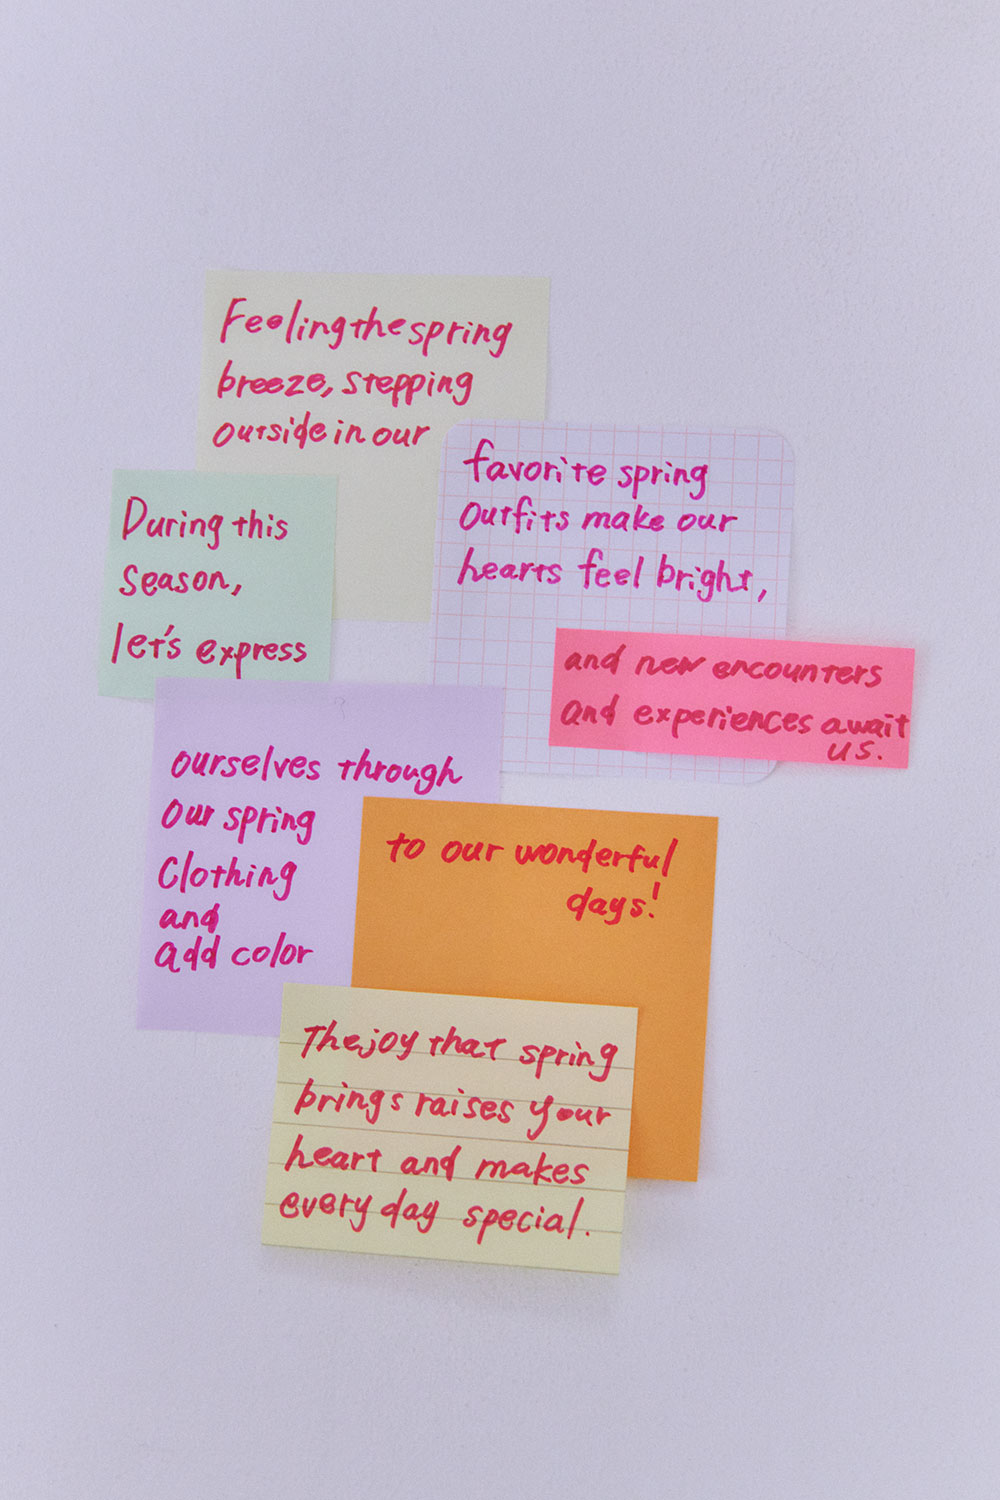 Feeling the spring
breeze, stepping
outside in our
favorite spring
outfits make our
hearts feel bright,
and new encounters
and experiences await
us.
During this
season,
let's express
ourselves through
our spring
Clothing
and
add color
to our wonderful
days!
The joy that spring
brings raises your
heart and makes
every day special.